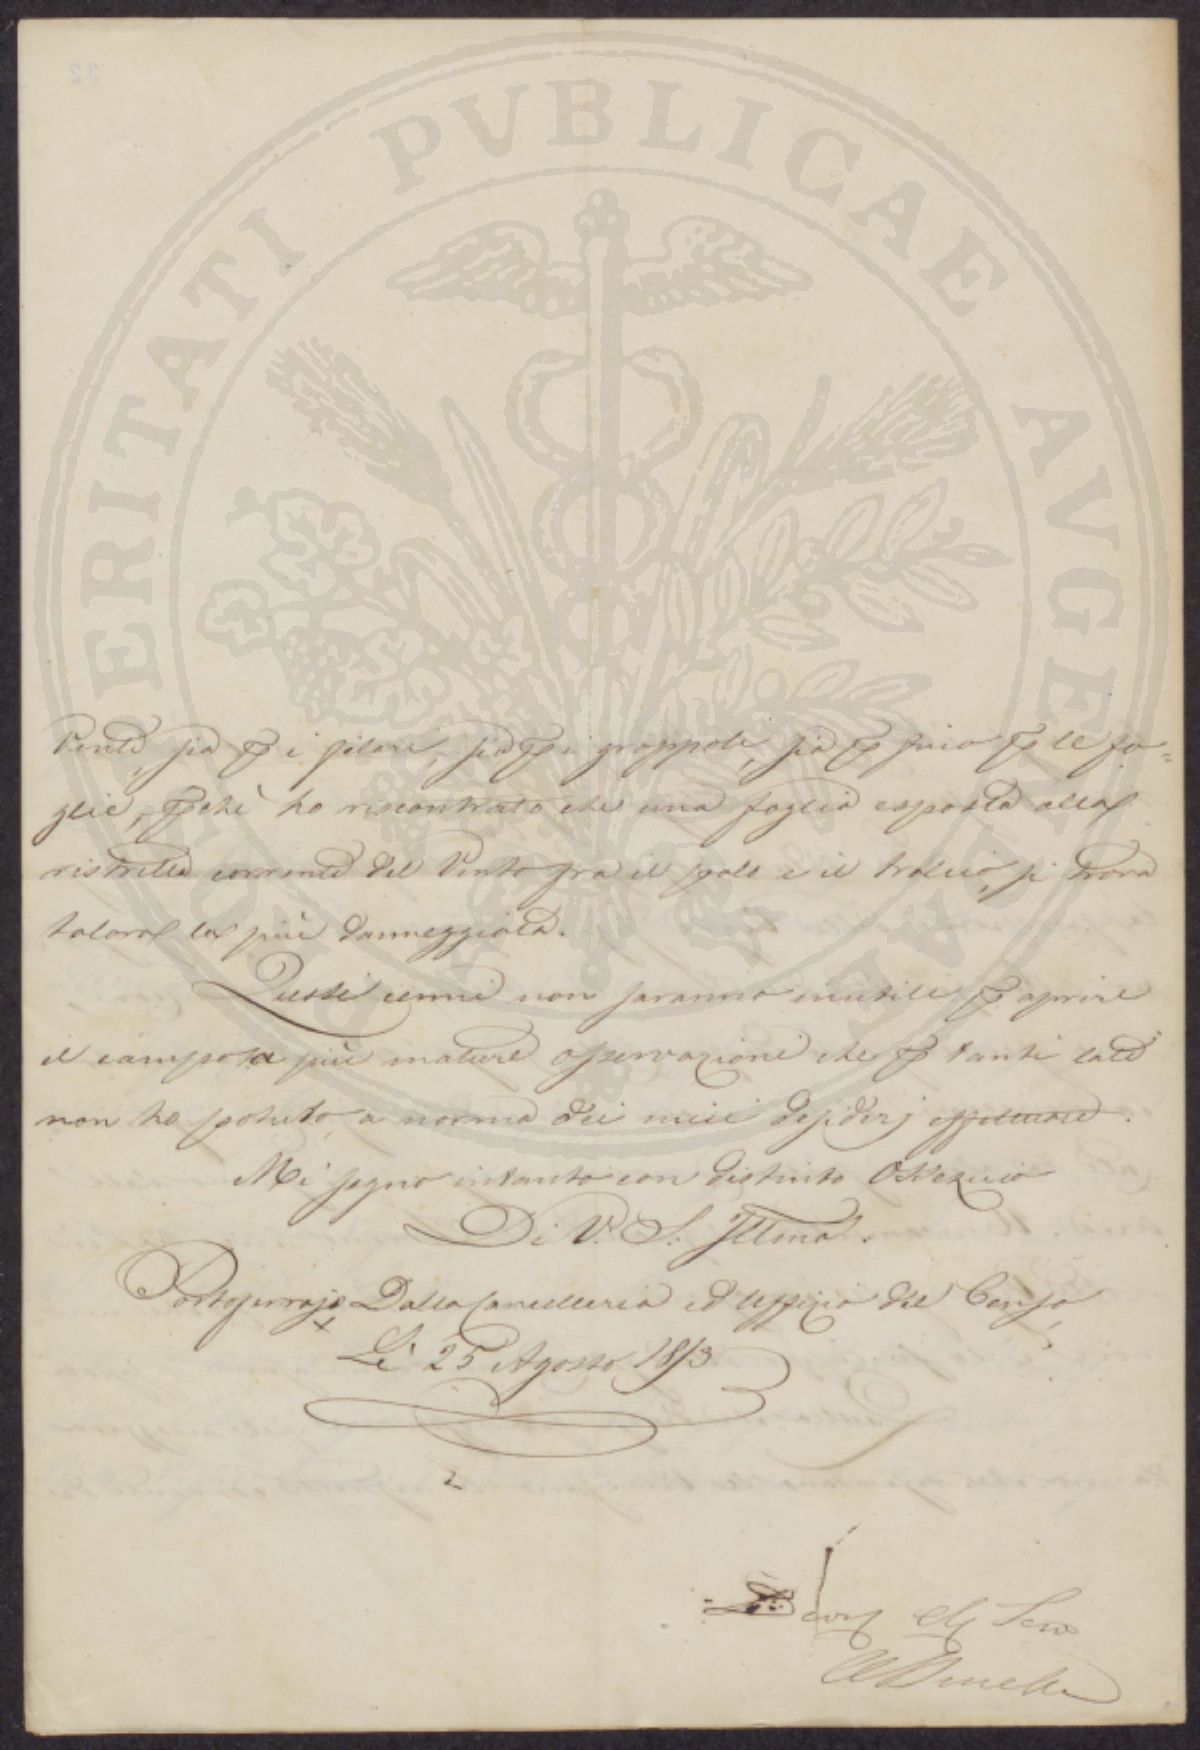 PROSPERITATI PVBLICAE AVGENDAE
Venti, sia p i filari, sia p i grappoli, sia p fino p le fo=
glie, pchè ho riscontrato che una foglia esposta alla
ristretta corrente del Vento fra il palo e il tralcio, si trova
talora la più danneggiata.
Questi cenni non saranno inutili p aprire
il campo a più mature osservazioni che p tanti lati
non ho potuto, a norma dei miei desiderj effettuare.
Mi segno intanto con distinto Ossequio
Di V. S. Illma.
Portoferrajo Dalla Cancelleria ed Uffizio del Censo,
Li 25 Agosto 1853
Dev